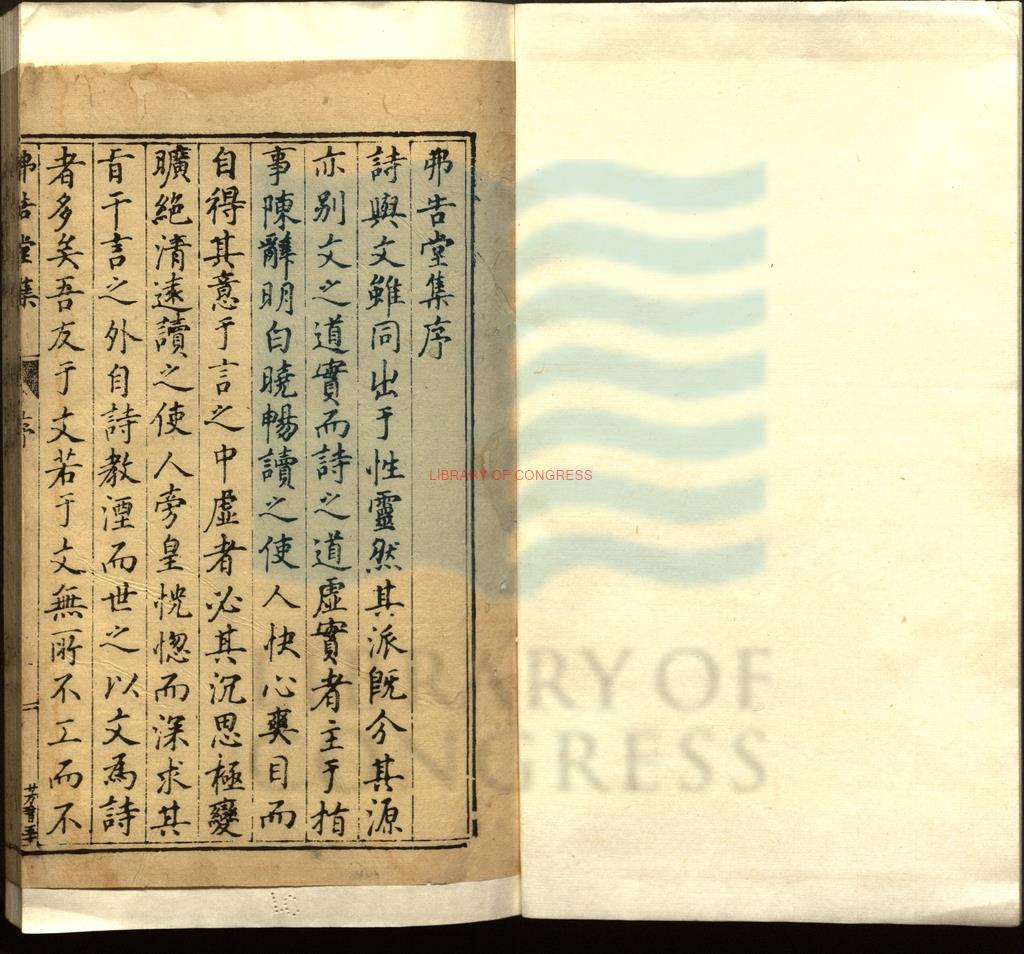 弗告堂集序
詩與文雖同出于性靈然其派既分其源
亦別文之道實而詩之道虛實者主于指
事陳辭明白曉暢讀之使人快心爽目而
自得其意于言之中虛者必其沉思極變
曠絶清遠讀之使人旁皇恍惚而深求其
旨于言之外自詩教湮而世之以文爲詩
者多矣吾友于文若于文無所不工而不
弗告堂集 序 一
LIBRARY OF CONGRESS
LIBRARY OF
CONGRESS